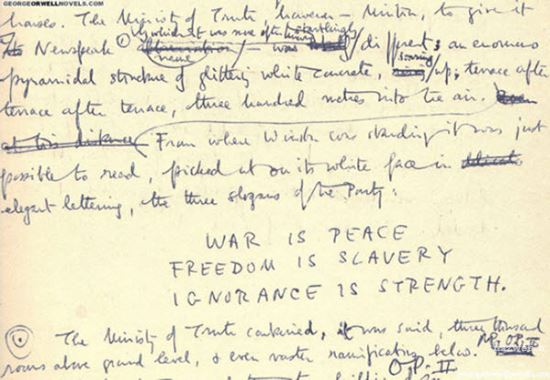 GEORGEORWELLNOVELS.COM
houses. The Ministry of Truth, however – Minitru, to give it
by which it was more often known startlingly
Newspeak name – was different; an enormous
soaring
pyramidal structure of glittering white concrete, up, terrace after
terrace after terrace, three hundred metres into the air.
at this distance From where Winston was standing it was just
possible to read, picked out on its white face in
elegant lettering, the three slogans of the Party:
WAR IS PEACE
FREEDOM IS SLAVERY
IGNORANCE IS STRENGTH.
The Ministry of Truth contained, it was said, three thousand
rooms above ground level, & even vaster ramifications below.